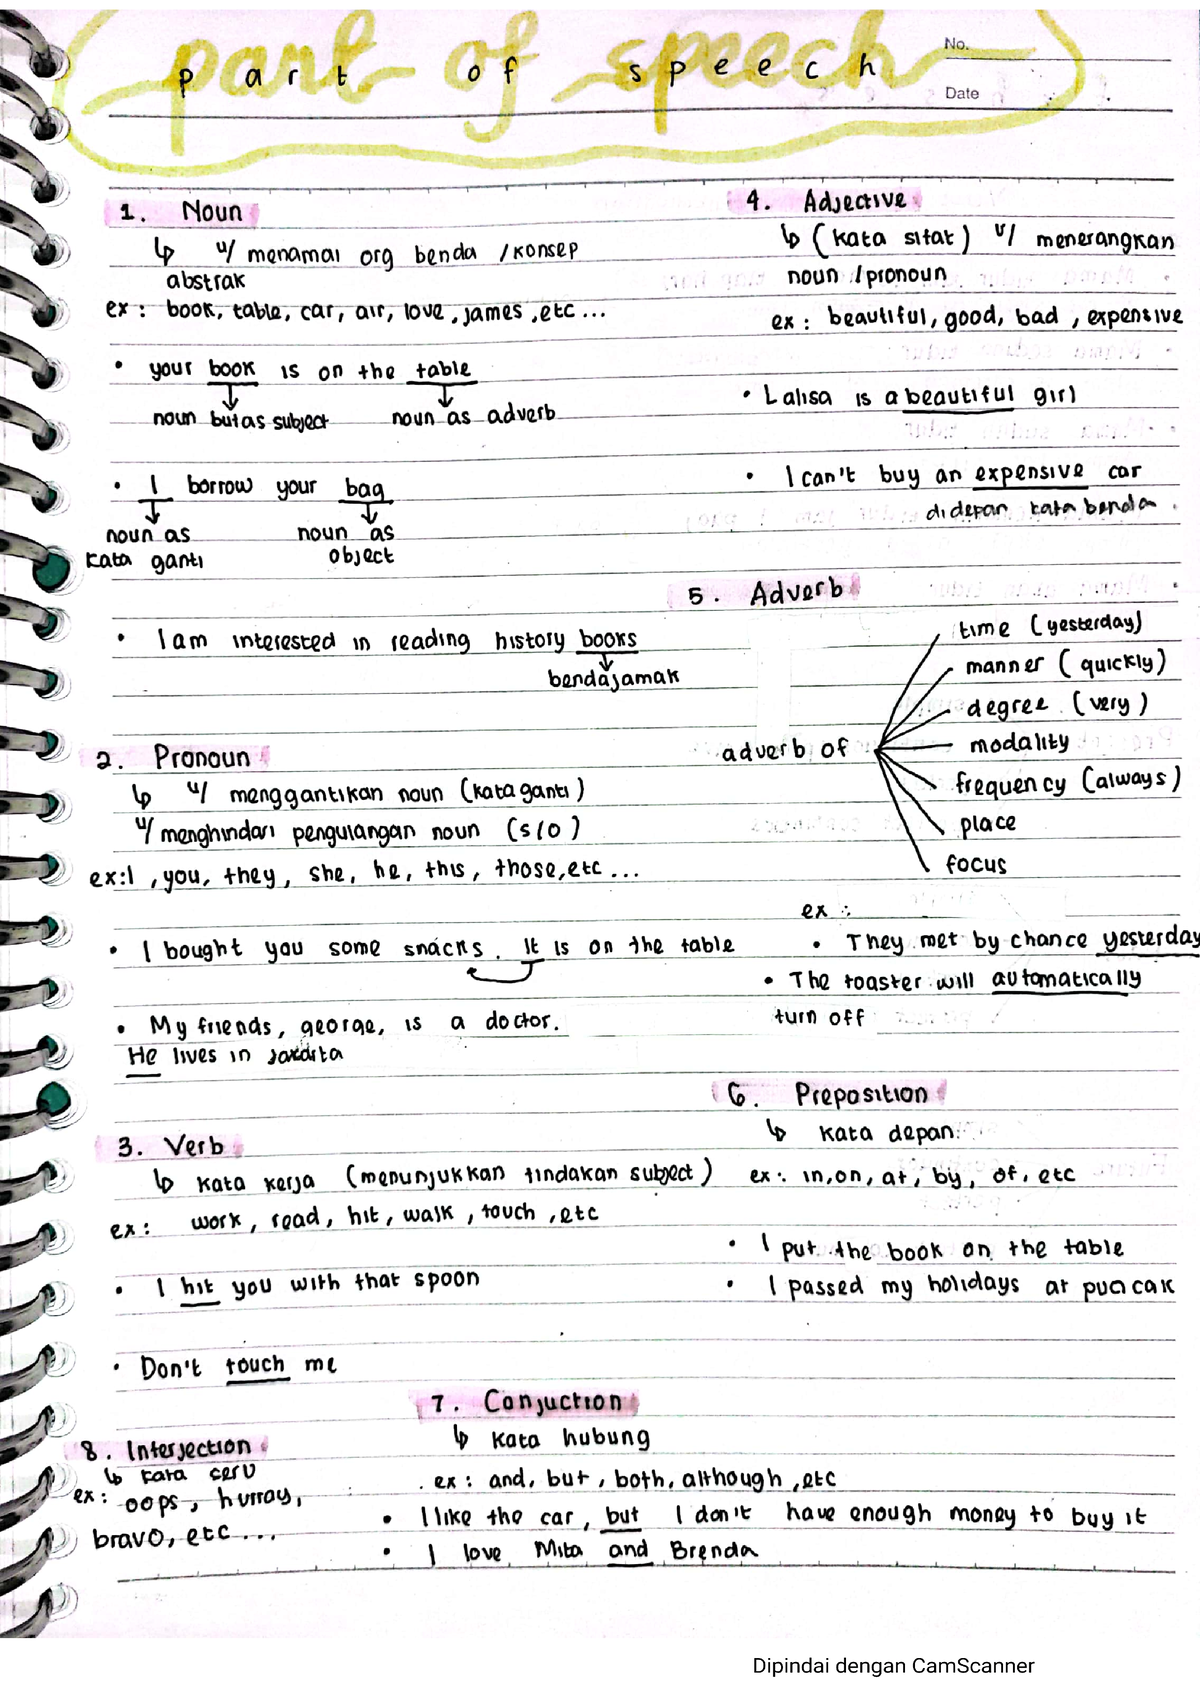 part of speech
part of speech
No.
Date
1. Noun
↳ u/ menamai org benda /konsep
abstrak
ex: book, table, car, air, love, james, etc...
• your book is on the table
noun butas subject
noun as adverb
• I borrow your bag
noun as
kata ganti
noun as
object
• I am interested in reading history books
benda jamak
2. Pronoun
↳ u/ menggantikan noun (kata ganti)
u/ menghindari pengulangan noun (s/o)
ex: I, you, they, she, he, this, those, etc...
• I bought you some snacks. It is on the table
• My friends, george, is a doctor.
He lives in
3. Verb
↳ kata kerja (menunjukkan tindakan subject)
ex: work, read, hit, walk, touch, etc
• I hit you with that spoon
• Don't touch me
4. Adjective
↳ (kata sifat) u/ menerangkan
noun /pronoun
ex: beautiful, good, bad, expensive
• Lalisa is a beautiful girl
• I can't buy an expensive car
didepan kata benda
5. Adverb
adverb of
time (yesterday)
manner (quickly)
degree (very)
modality
frequency (always)
place
focus
ex:
• They met by chance yesterday
• The toaster will automatically
turn off
6. Preposition
↳ kata depan
ex: in, on, at, by, of, etc
• I put the book on the table
• I passed my holidays at puncak
7. Conjuction
↳ kata hubung
ex: and, but, both, although, etc
• I like the car, but I don't have enough money to buy it
• I love Mita and Brenda
8. Interjection
↳ kata seru
ex: oops, hurray,
bravo, etc...
Dipindai dengan CamScanner